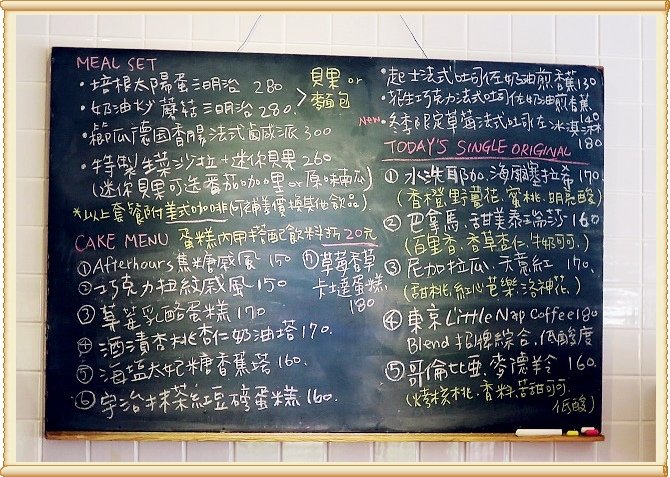 MEAL SET
・培根太陽蛋三明治 280
・奶油炒蘑菇三明治 280.
> 貝果 or 麵包
・櫛瓜德國香腸法式鹹派 300
・特製生菜沙拉+迷你貝果 260
(迷你貝果可选番茄咖哩 or 原味南瓜)
*以上套餐附美式咖啡(可補差價換其他飲品)
CAKE MENU 蛋糕內用搭配飲料折20元
①Afterhours焦糖戚風 150
②巧克力扭紋戚風 150
③草莓乳酪蛋糕 170
④酒漬杏桃杏仁奶油塔 170.
⑤海盐太妃糖香蕉塔 160.
⑥宇治抹茶紅豆磅蛋糕 160.
⑦草莓香草
卡士達蛋糕
180
・起士法式吐司佐奶油煎香蕉 130
・花生巧克力法式吐司佐奶油煎香蕉 140
New ・冬季限定草莓法式吐司佐冰淇淋
180
TODAY'S SINGLE ORIGINAL
① 水洗耶 海爾塞拉希 170.
(香橙.野薑花.蜜桃.明亮酸)
② 巴拿馬.甜美泰瑞莎 160
(百里香.香草杏仁.牛奶可可.)
③ 尼加拉瓜.天意紅 170.
(甜桃.紅心芭樂.洛神花.)
④ 東京 Little Nap Coffee 180
Blend 招牌綜合.低酸度
⑤哥倫比亞.麥德羚 160.
(烤核桃.香料.苦甜可可.
低酸)